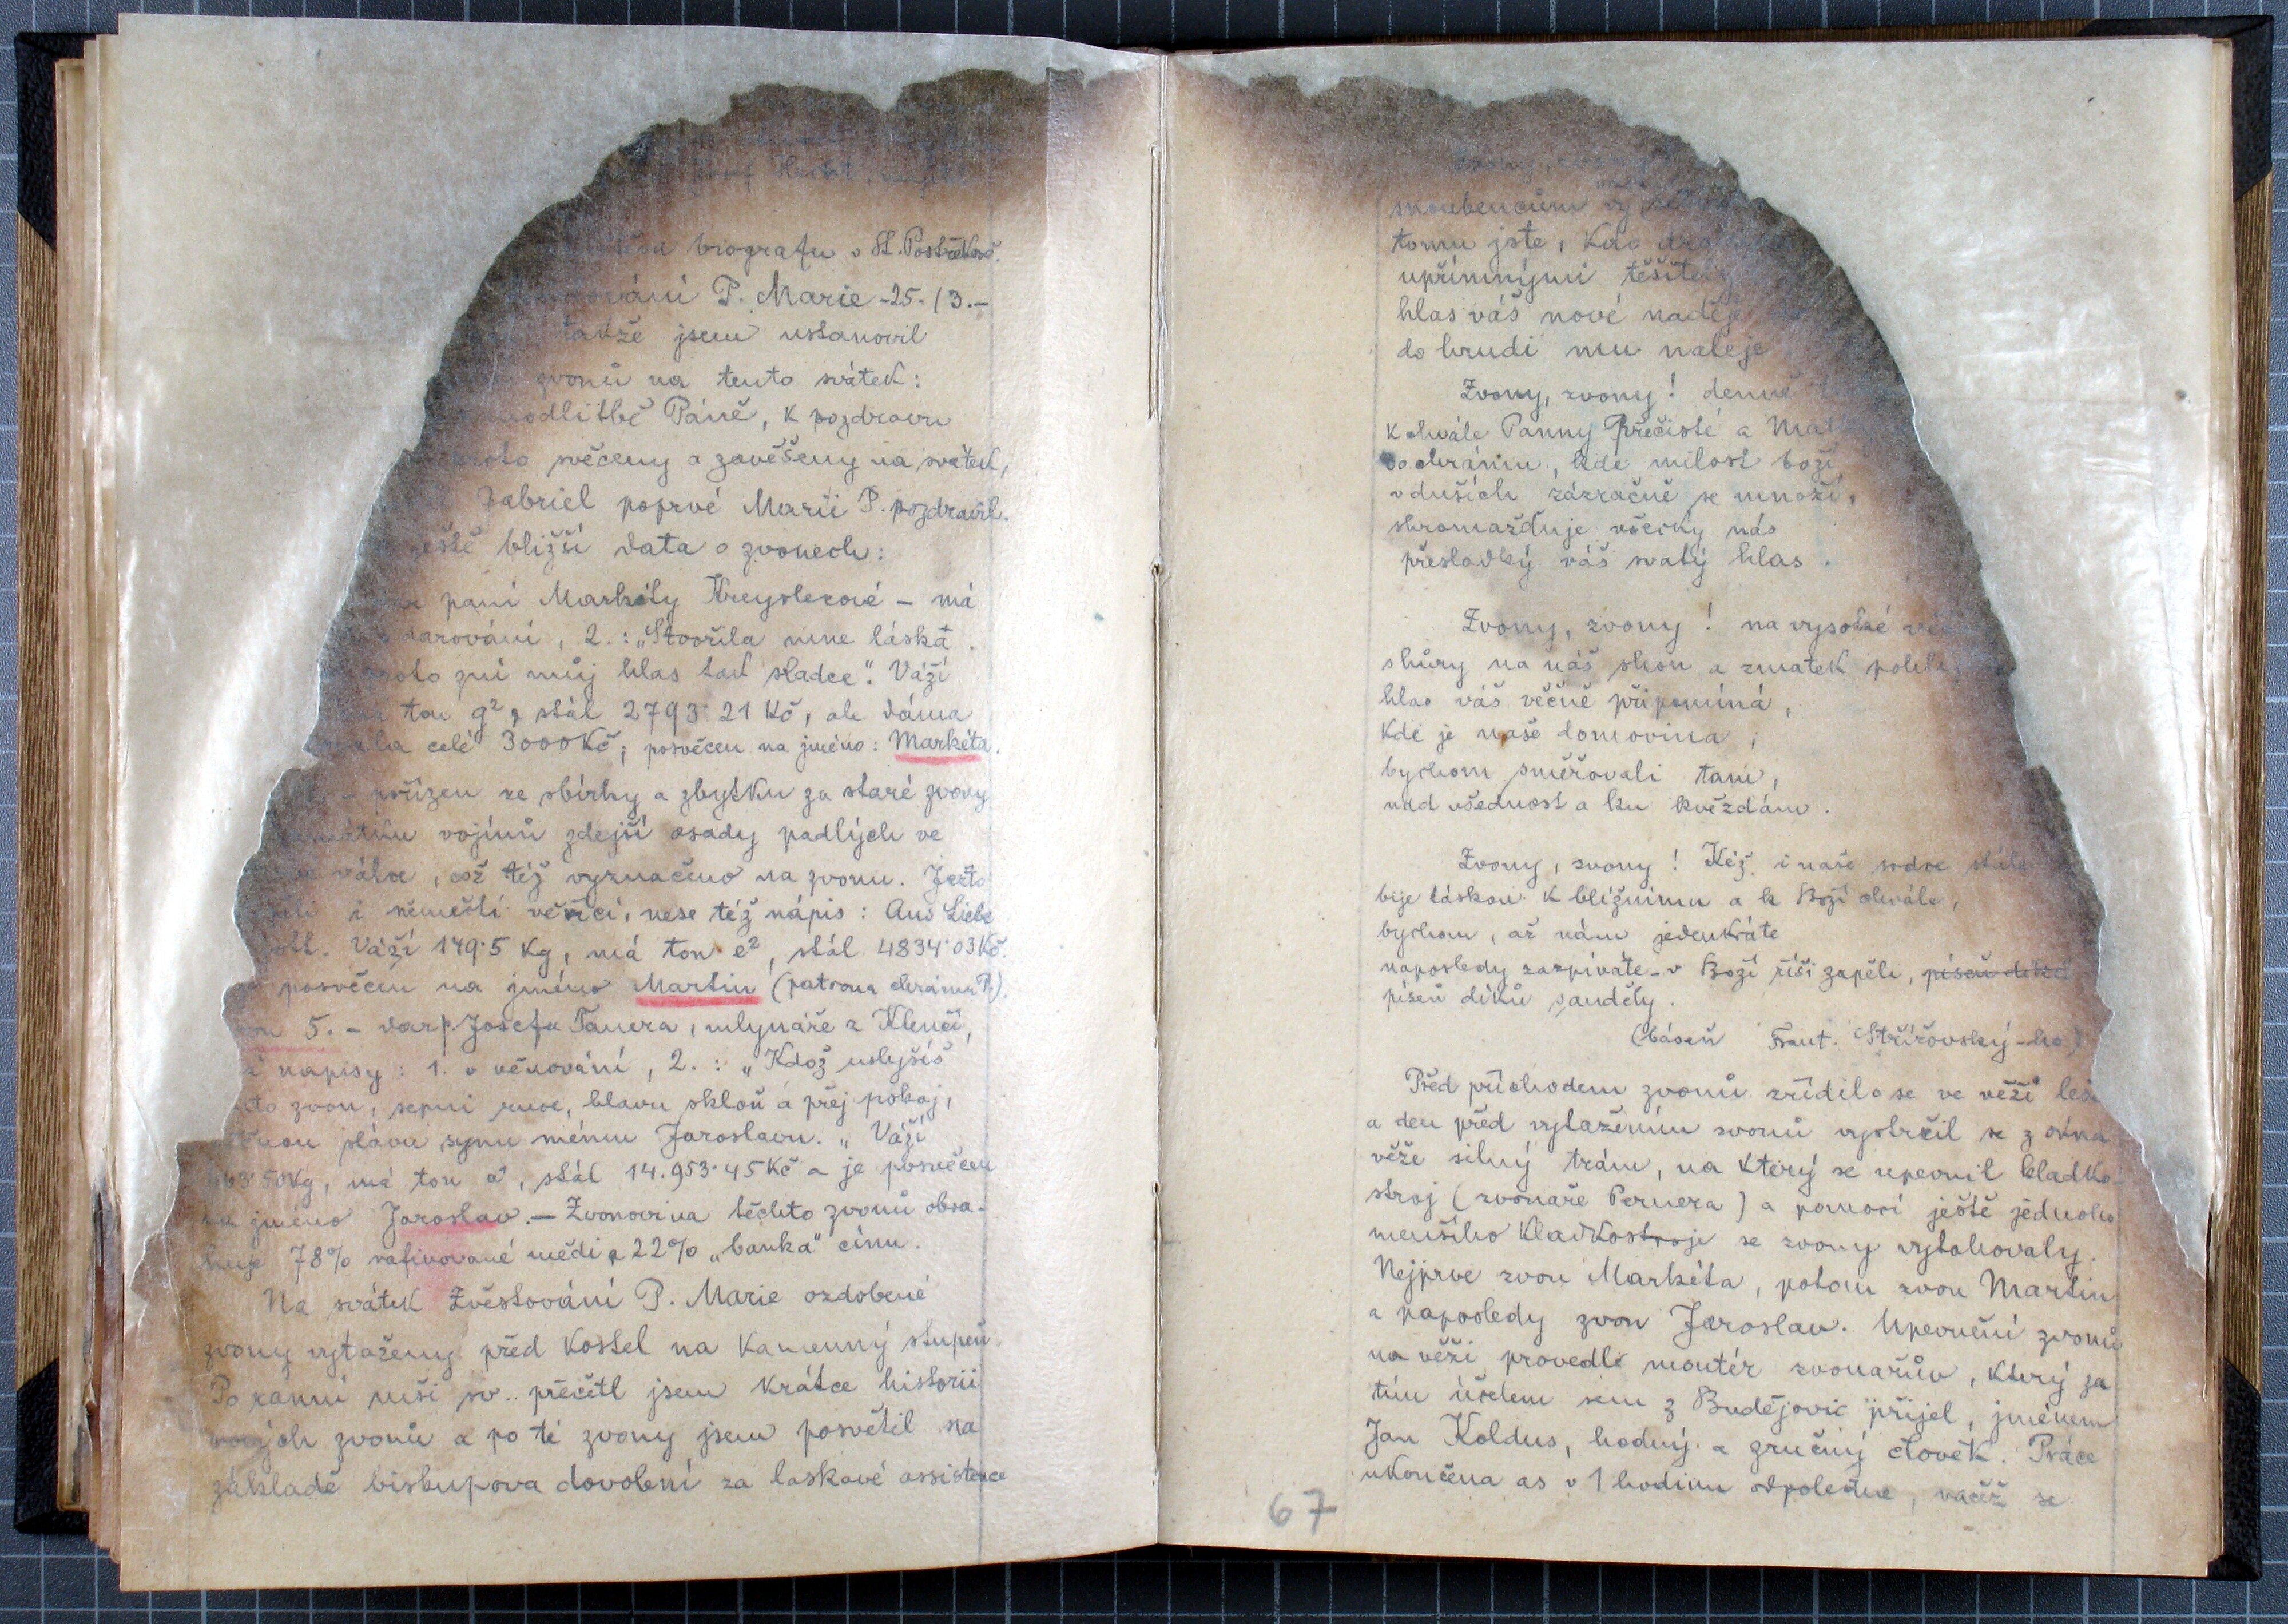 biografu v St. Postřekově.
P. Marie - 25./3. -
takže jsem ustanovil
zvonů na tento svátek:
modlitbě Páně, k pozdravu
proto svěceny a zavěšeny na svátek,
Gabriel poprvé Marii P. pozdravil.
ještě bližší data o zvonech:
paní Markéty Kreyslerové - má
darování, 2.: „Stvořila mne láska.
proto zní můj hlas tak sladce." Váží
ton g², stál 2793·21 Kč, ale dáma
celé 3000 Kč; posvěcen na jméno: Markéta.
- pořízen ze sbírky a zbytku za staré zvony
vojínů zdejší osady padlých ve
válce, což též vyznačeno na zvonu. Ježto
i němečtí věřící, nese též nápis: Aus Liebe
Váží 179·5 kg, má ton e², stál 4834·03 Kč.
posvěcen na jméno Martin (patrona chrámu P.).
5. - dar p. Josefa Tauera, mlynáře z Klenčí,
nápisy: 1. o věnování, 2.: „Kdož uslyšíš
zvon, sepni ruce, hlavu skloň a přej pokoj,
slávu synu mému Jaroslavu." Váží
63·50 kg, má ton a¹, stál 14.953·45 Kč a je posvěcen
na jméno Jaroslav. - Zvonovina těchto zvonů obsa-
huje 78% rafinované mědi a 22% „banka" cínu.
Na svátek Zvěstování P. Marie ozdobené
zvony vytaženy před kostel na kamenný stupeň.
Po ranní mši sv. přečetl jsem krátce historii
nových zvonů a po té zvony jsem posvětil na
základě biskupova dovolení za laskavé assistence
snoubencům
tomu jste, kdo
upřímnými těšiteli
hlas váš nové naděje
do hrudi mu naleje
Zvony, zvony! denně
k chvále Panny Přečisté a
do chrámu, kde milost boží
v duších zázračně se množí,
shromažďuje všecky nás
přesladký váš svatý hlas.
Zvony, zvony! na vysoké
shůry na náš shon a zmatek
hlas váš věčně připomíná,
kde je naše domovina,
bychom směřovali tam,
nad všednost a ku hvězdám.
Zvony, zvony! Kéž i naše srdce stále
bije láskou k bližnímu a k Boží chvále,
bychom, až nám jedenkráte
naposledy zazpíváte - v Boží říši zapěli, píseň díků
píseň díků s anděly.
(báseň Frant. Střížovský-ho)
Před příchodem zvonů zřídilo se ve věži
a den před vytažením zvonů vystrčil se z okna
věže silný trám, na který se upevnil kladko-
stroj (zvonaře Pernera) a pomocí ještě jednoho
menšího kladkostroje se zvony vytahovaly.
Nejprve zvon Markéta, potom zvon Martin
a naposledy zvon Jaroslav. Upevnění zvonů
na věži provedl montér zvonařův, který za
tím účelem sem z Budějovic přijel, jménem
Jan Koldus, hodný a zručný člověk. Práce
ukončena as v 1 hodinu odpoledne, načež se
67